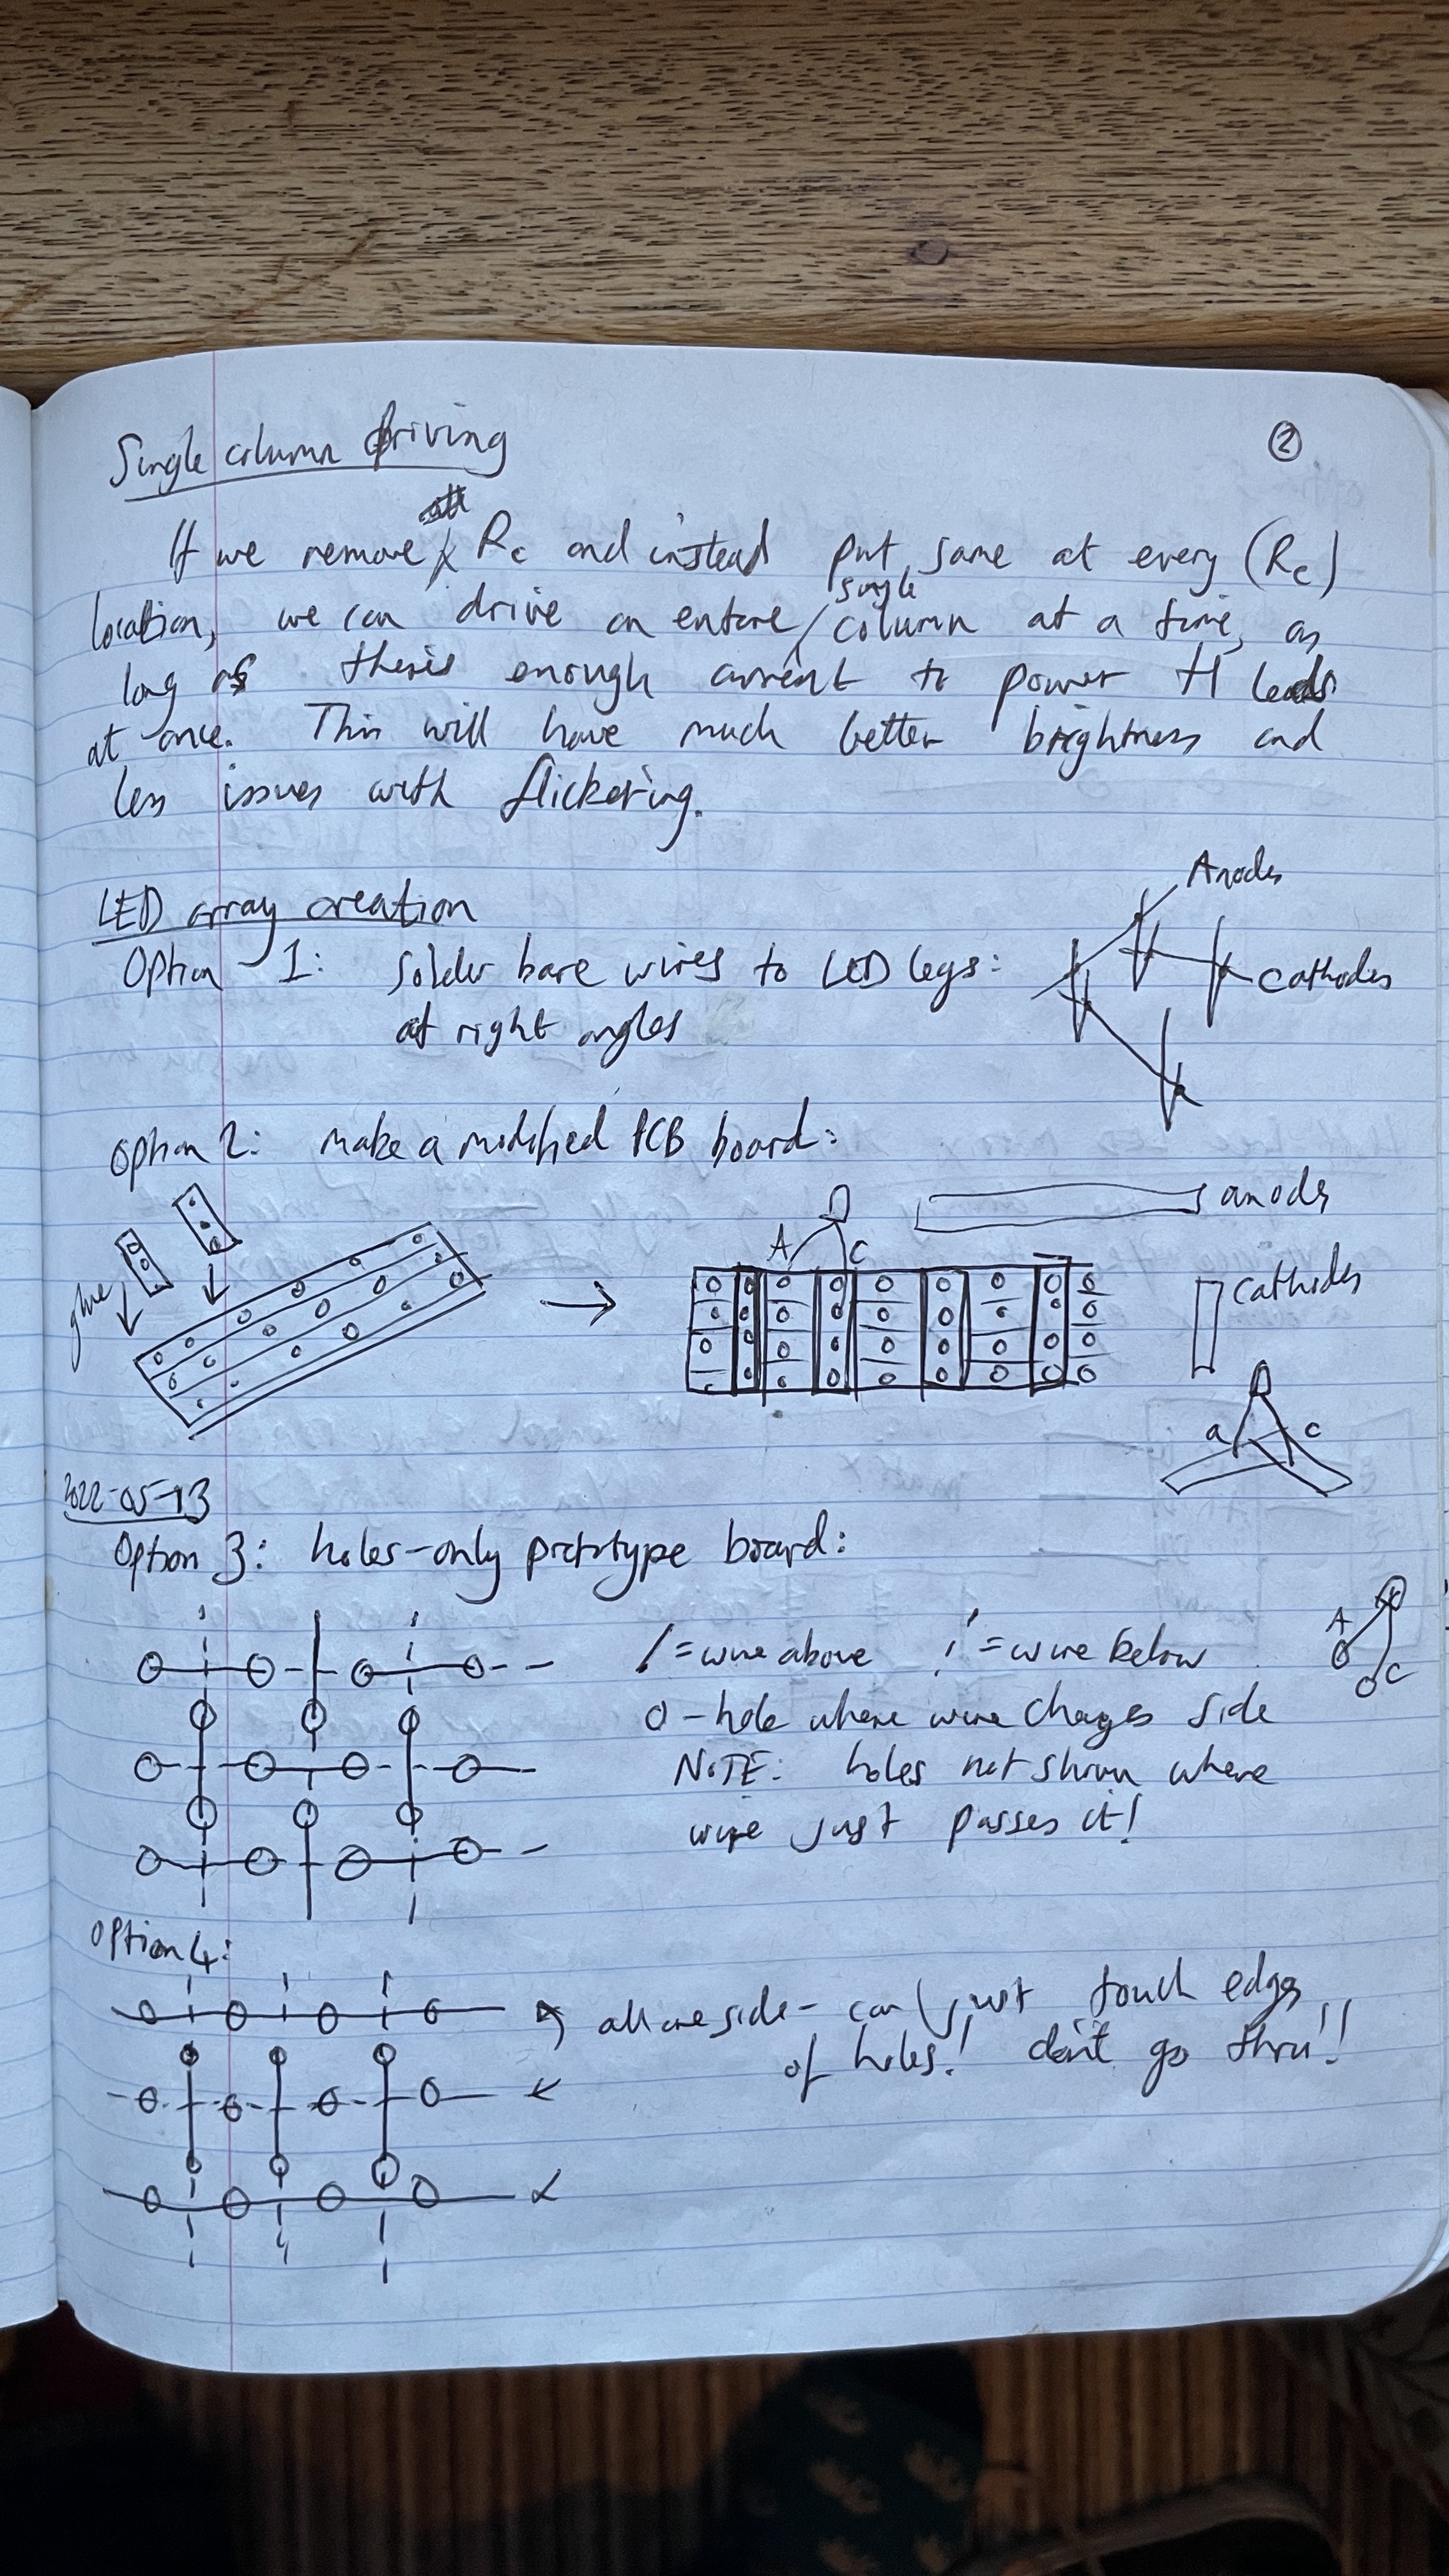 Single column driving
②
If we remove Rc and instead put same at every (Rc)
location, we can drive an entire single column at a time, as
long as there's enough current to power H leds
at once. This will have much better brightness and
less issues with flickering.
LED array creation
Anodes
Option 1: Solder bare wires to LED legs:
at right angles
Cathodes
Option 2: make a modified PCB board:
glue
A C
anodes
cathodes
a c
2022-05-13
Option 3: holes-only prototype board:
/ = wire above ¦ = wire below
A
C
O - hole where wire changes side
NOTE: holes not shown where
wire just passes it!
Option 4:
all one side - can just touch edges
of holes! don't go thru!!